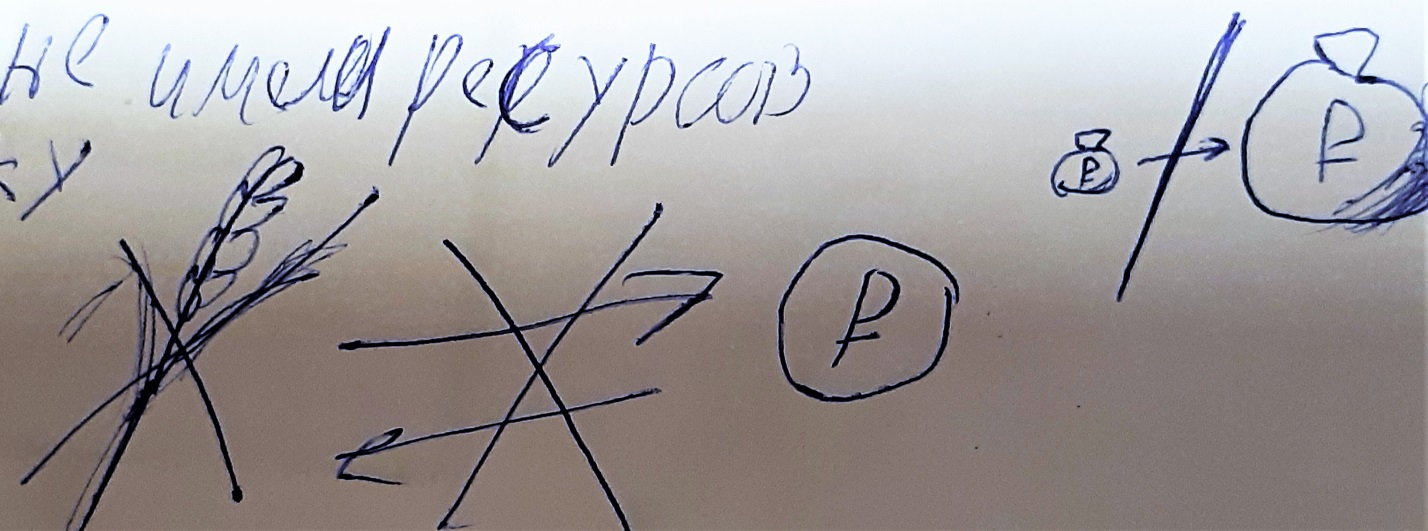 не имела ресурсов
ку
₽
₽
₽